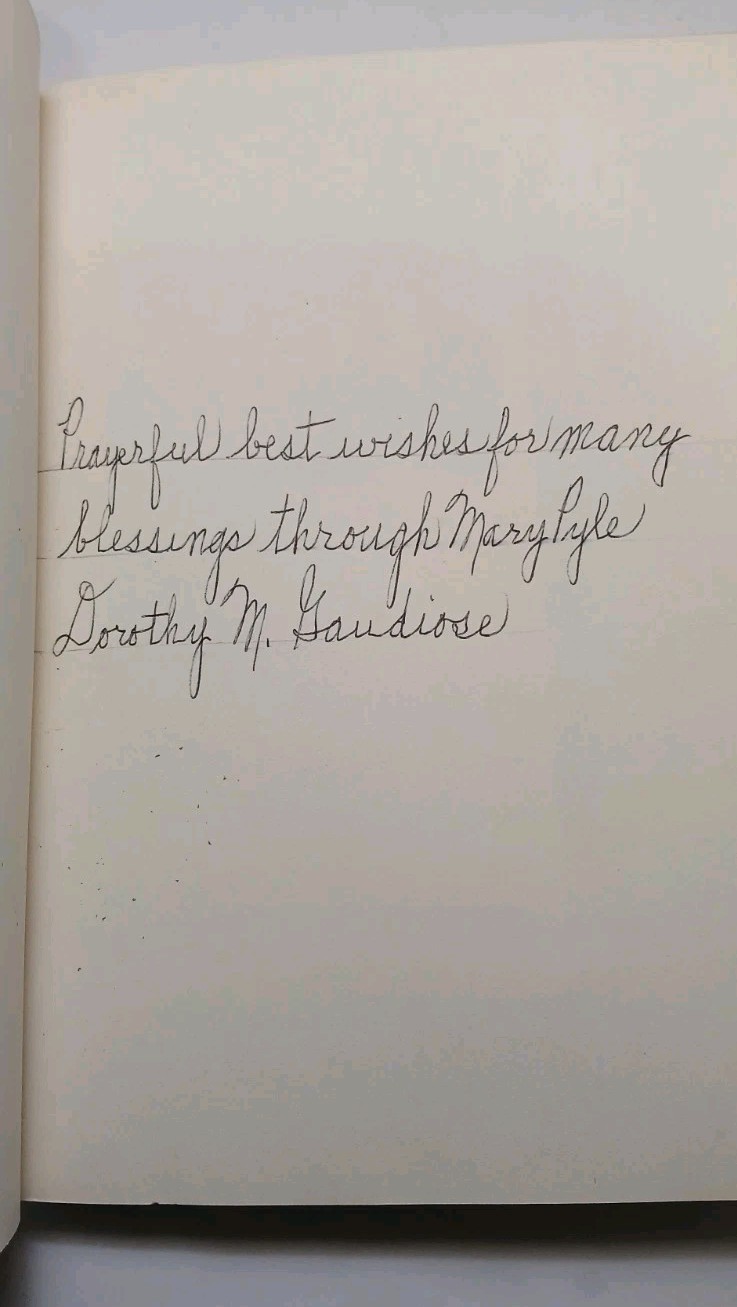 Prayerful best wishes for many
blessings through Mary Pyle
Dorothy M. Gaudiose